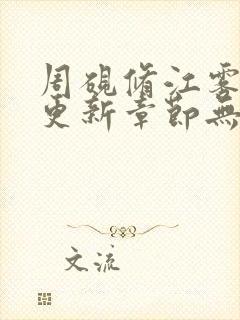 周硯脩江雾
更新章節無
文流